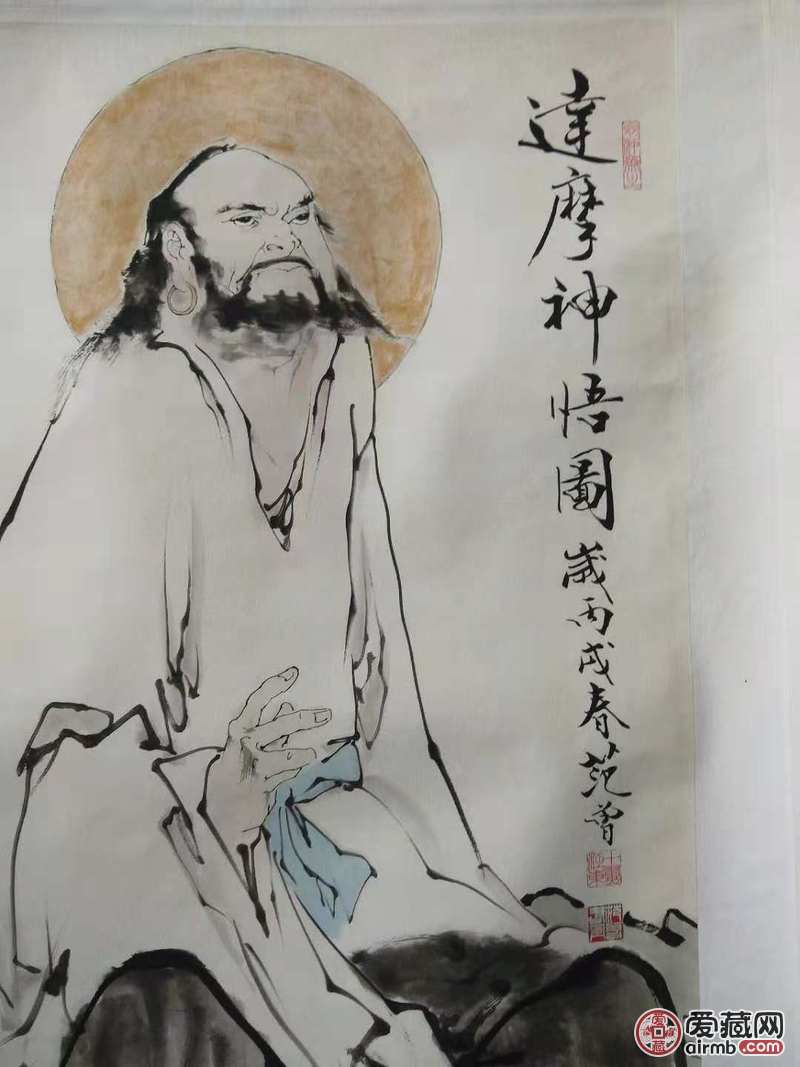 達摩神悟圖
歲丙戌春范曾
爱藏网
airmb.com